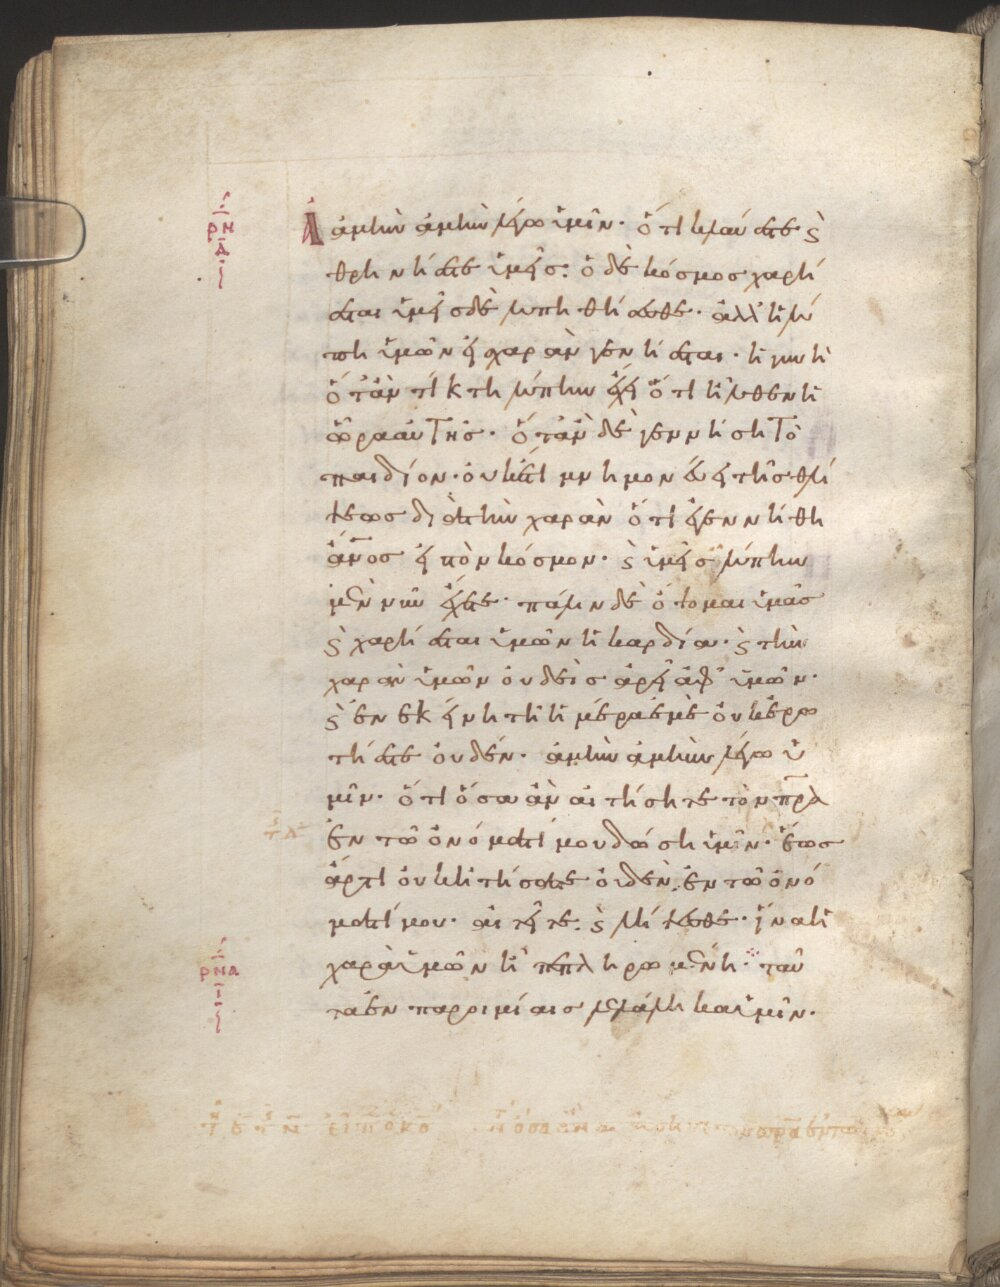 ἀμὴν ἀμὴν λέγω ὑμῖν· ὅτι κλαύσετε ϗ
θρηνήσετε ὑμεῖς· ὁ δὲ κόσμος χαρή
σεται ὑμεῖς δὲ λυπηθήσεσθε· ἀλλ' ἡ λύ
πη ὑμῶν εἰς χαρὰν γενήσεται· ἡ γυνὴ
ὅταν τίκτη λύπην ἔχει ὅτι ἦλθεν ἡ
ὥρα αὐτῆς· ὅταν δὲ γεννήση τὸ
παιδίον· οὐκέτι μνημονεύει τῆς θλί
ψεως διὰ τὴν χαρὰν ὅτι ἐγεννήθη
ἄνος εἰς τὸν κόσμον· ϗ ὑμεῖς λύπην
μὲν νῦν ἔχετε· πάλιν δὲ ὄψομαι ὑμᾶς
ϗ χαρήσεται ὑμῶν ἡ καρδία· ϗ τὴν
χαρὰν ὑμῶν οὐδεὶς αἴρει ἀφ' ὑμῶν·
ϗ ἐν ἐκείνη τῆ ἡμέρα ἐμὲ οὐκ ἐρω
τήσετε οὐδέν· ἀμὴν ἀμὴν λέγω ὑ
μῖν· ὅτι ὅσα ἂν αἰτήσητε τὸν πρα
ἐν τῶ ὀνόματί μου δώση ὑμῖν· ἕως
ἄρτι οὐκ ἠτήσατε οὐδὲν ἐν τῶ ὀνό
ματί μου· αἰτεῖτε· ϗ λήψεσθε· ἵνα ἡ
χαρὰ ὑμῶν ἦ πεπληρωμένη· ταῦ
τα ἐν παροιμίαις λελάληκα ὑμῖν·